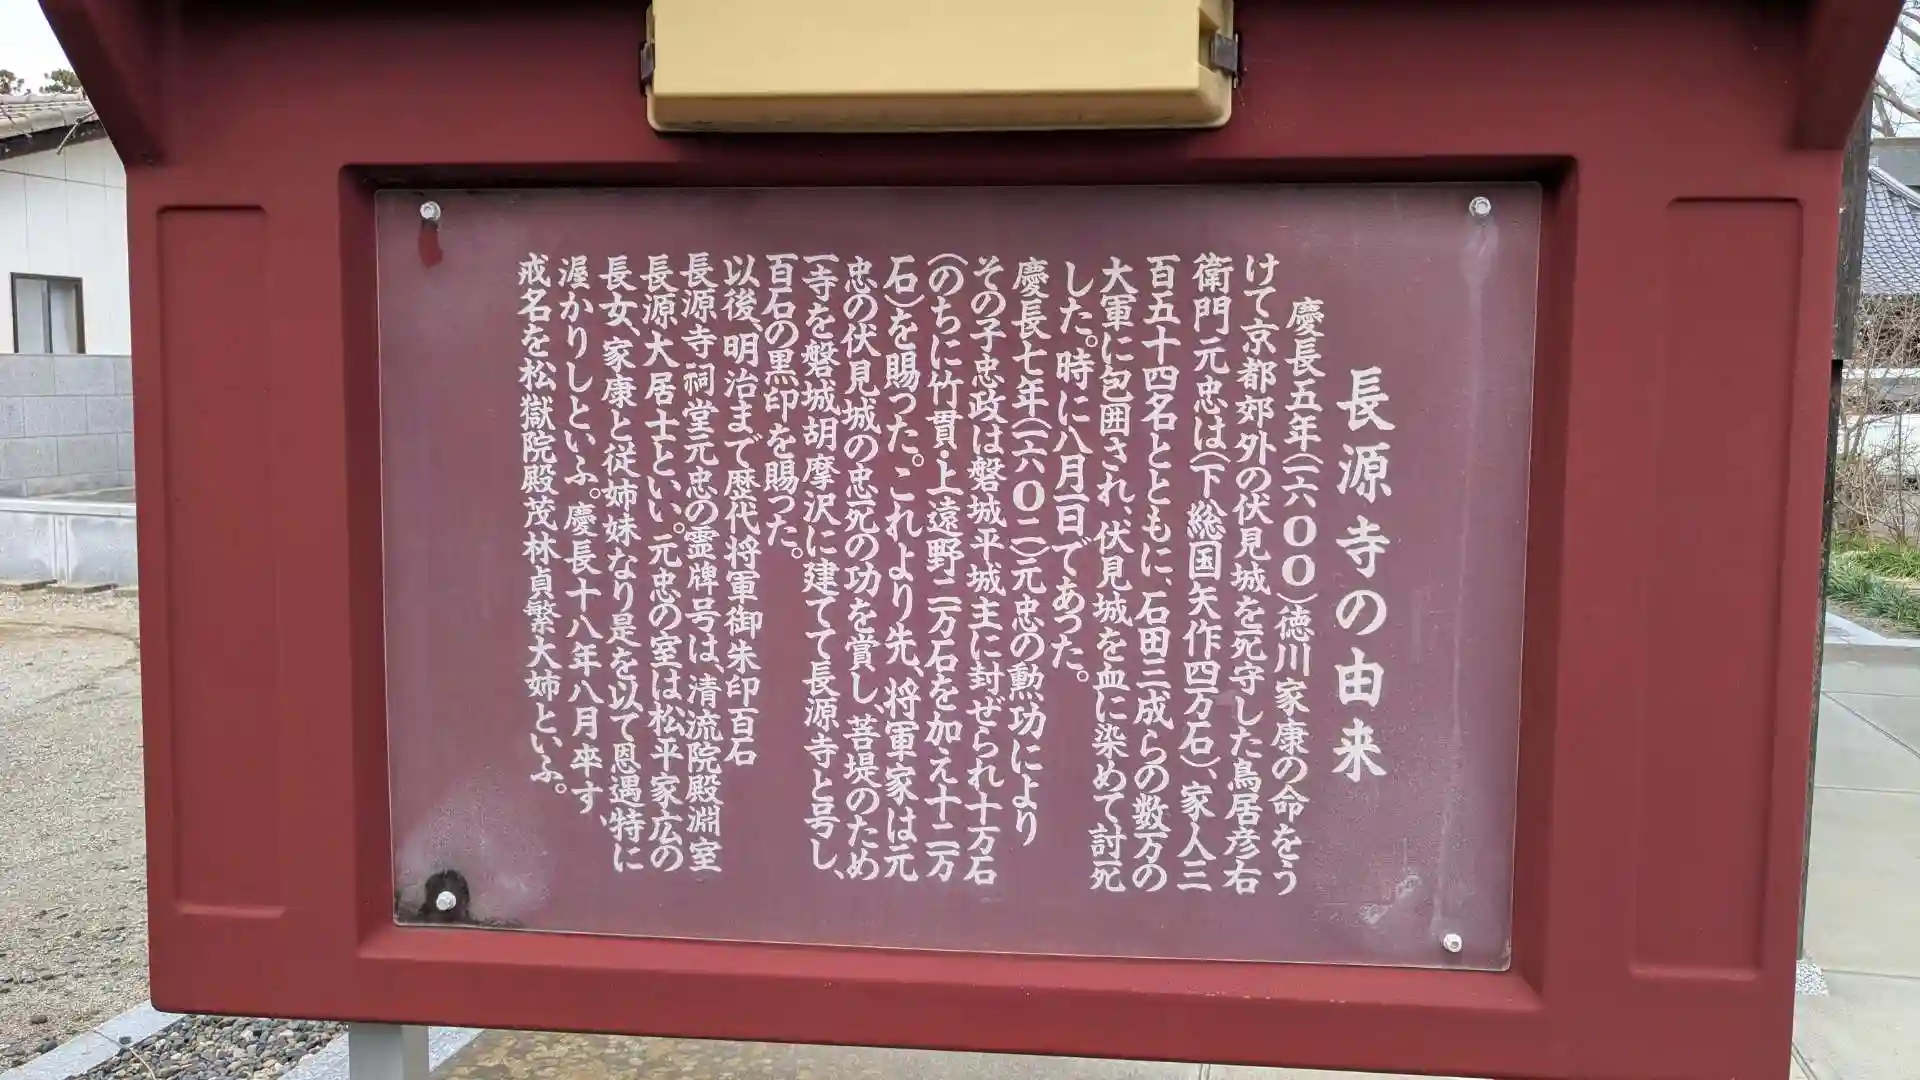 長源寺の由来
慶長五年(一六〇〇)徳川家康の命をう
けて京都郊外の伏見城を死守した鳥居彦右
衛門元忠は(下総国矢作四万石)、家人三
百五十四名とともに、石田三成らの数万の
大軍に包囲され、伏見城を血に染めて討死
した。時に八月一日であった。
慶長七年(一六〇二)元忠の勲功により
その子忠政は磐城平城主に封ぜられ十万石
(のちに竹貫・上遠野二万石を加え十二万
石)を賜った。これより先、将軍家は元
忠の伏見城の忠死の功を賞し、菩堤のため
一寺を磐城胡摩沢に建てて長源寺と号し、
百石の黒印を賜った。
以後、明治まで歴代将軍御朱印百石
長源寺祠堂元忠の霊牌号は、清流院殿淵室
長源大居士といい。元忠の室は松平家広の
長女、家康と従姉妹なり是を以て恩遇特に
渥かりしといふ。慶長十八年八月卒す、
戒名を松獄院殿茂林貞繁大姉といふ。